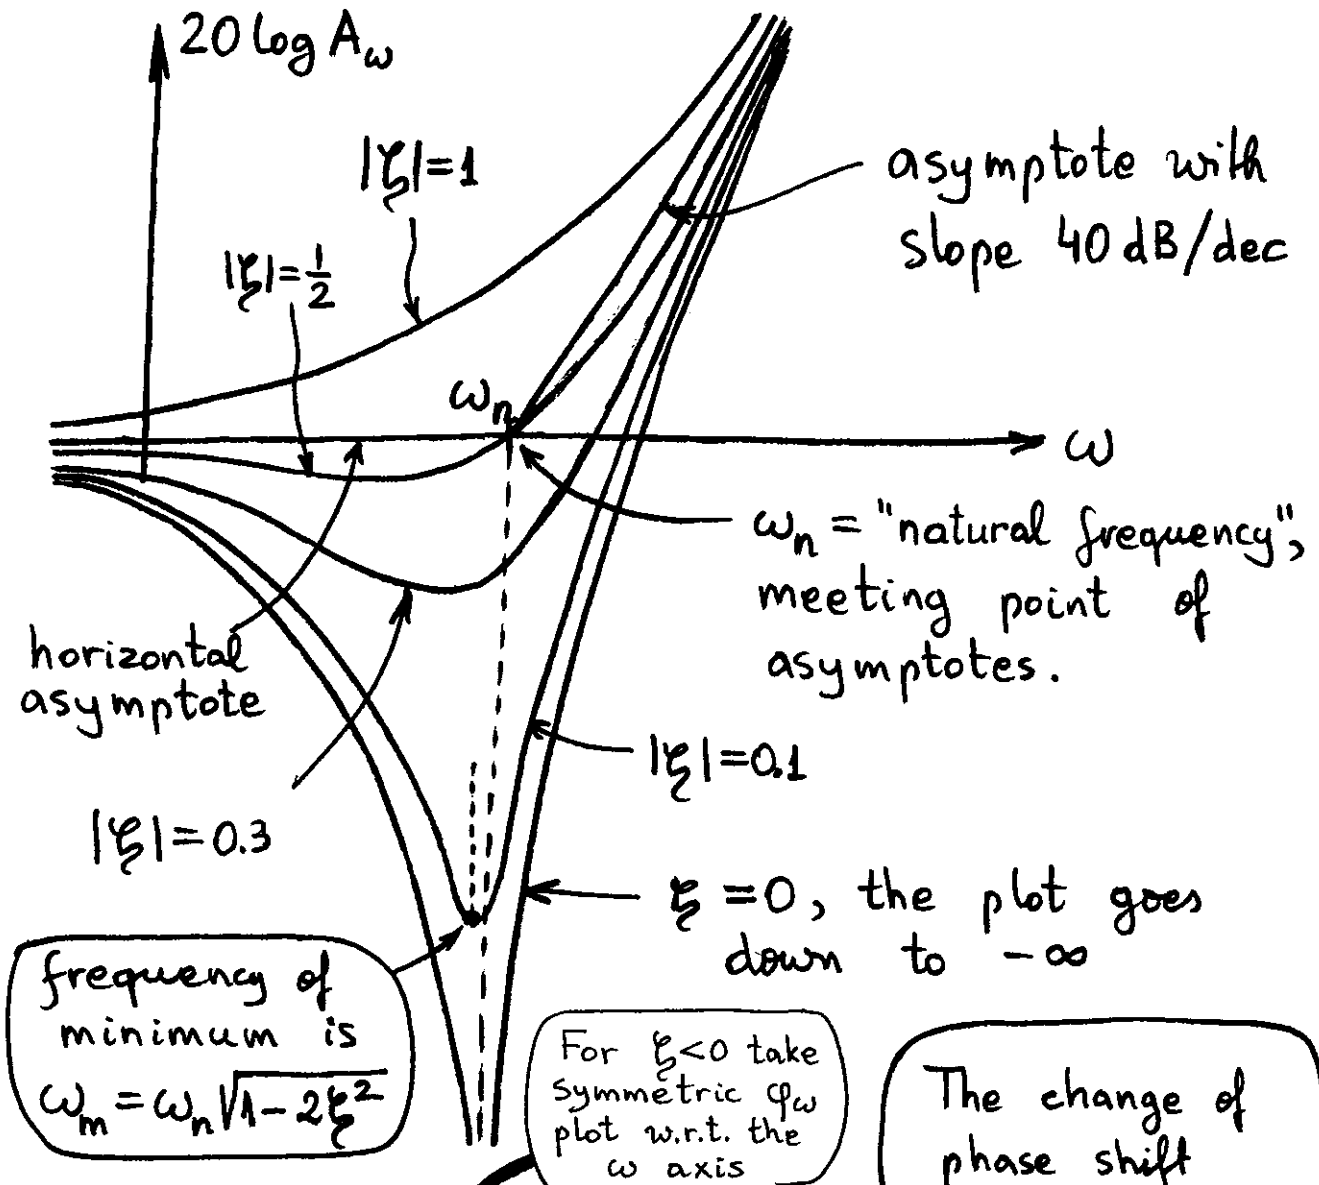 20 log A_ω
|ζ|=1
asymptote with
slope 40 dB/dec
|ζ|=1/2
ω_n
ω
ω_n = "natural frequency",
meeting point of
asymptotes.
horizontal
asymptote
|ζ|=0.1
|ζ|=0.3
ζ=0, the plot goes
down to -∞
frequency of
minimum is
ω_m = ω_n √(1-2ζ²)
For ζ<0 take
symmetric φ_ω
plot w.r.t. the
ω axis
The change of
phase shift